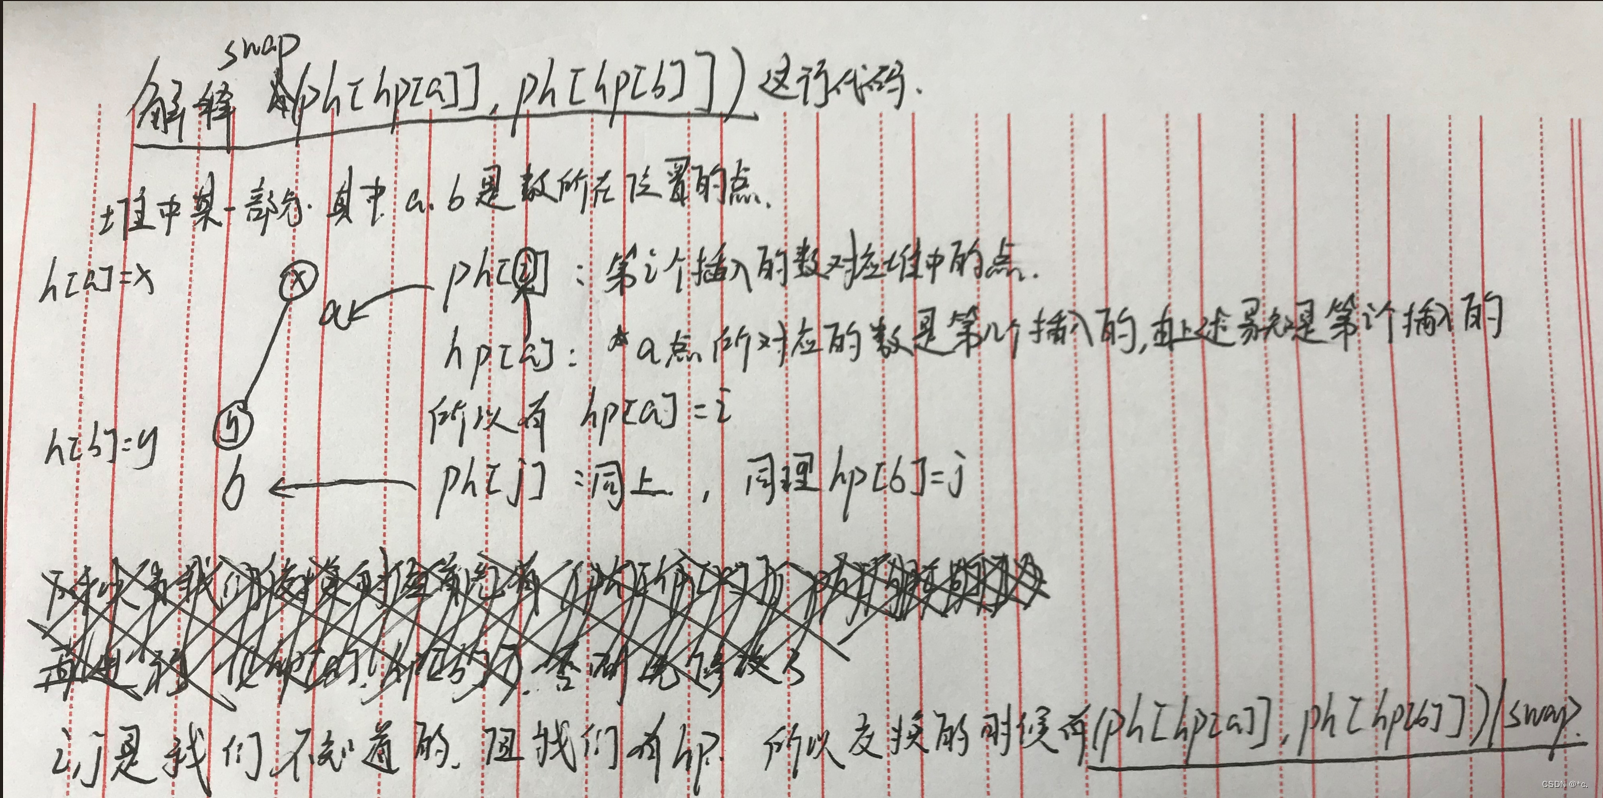 swap
解释 (ph[hp[a]], ph[hp[b]]) 这行代码.
堆中某一部分. 其中 a.b 是数所在位置的点.
h[a]=x
x
a
ph[i] : 第i个插入的数对应堆中的点.
hp[a] : a点所对应的数是第几个插入的, 由上述易知是第i个插入的
所以有 hp[a]=i
h[b]=y
y
b
ph[j] : 同上 , 同理 hp[b]=j
i,j是我们不知道的. 但我们有hp. 所以交换的时候有(ph[hp[a]], ph[hp[b]])/swap.